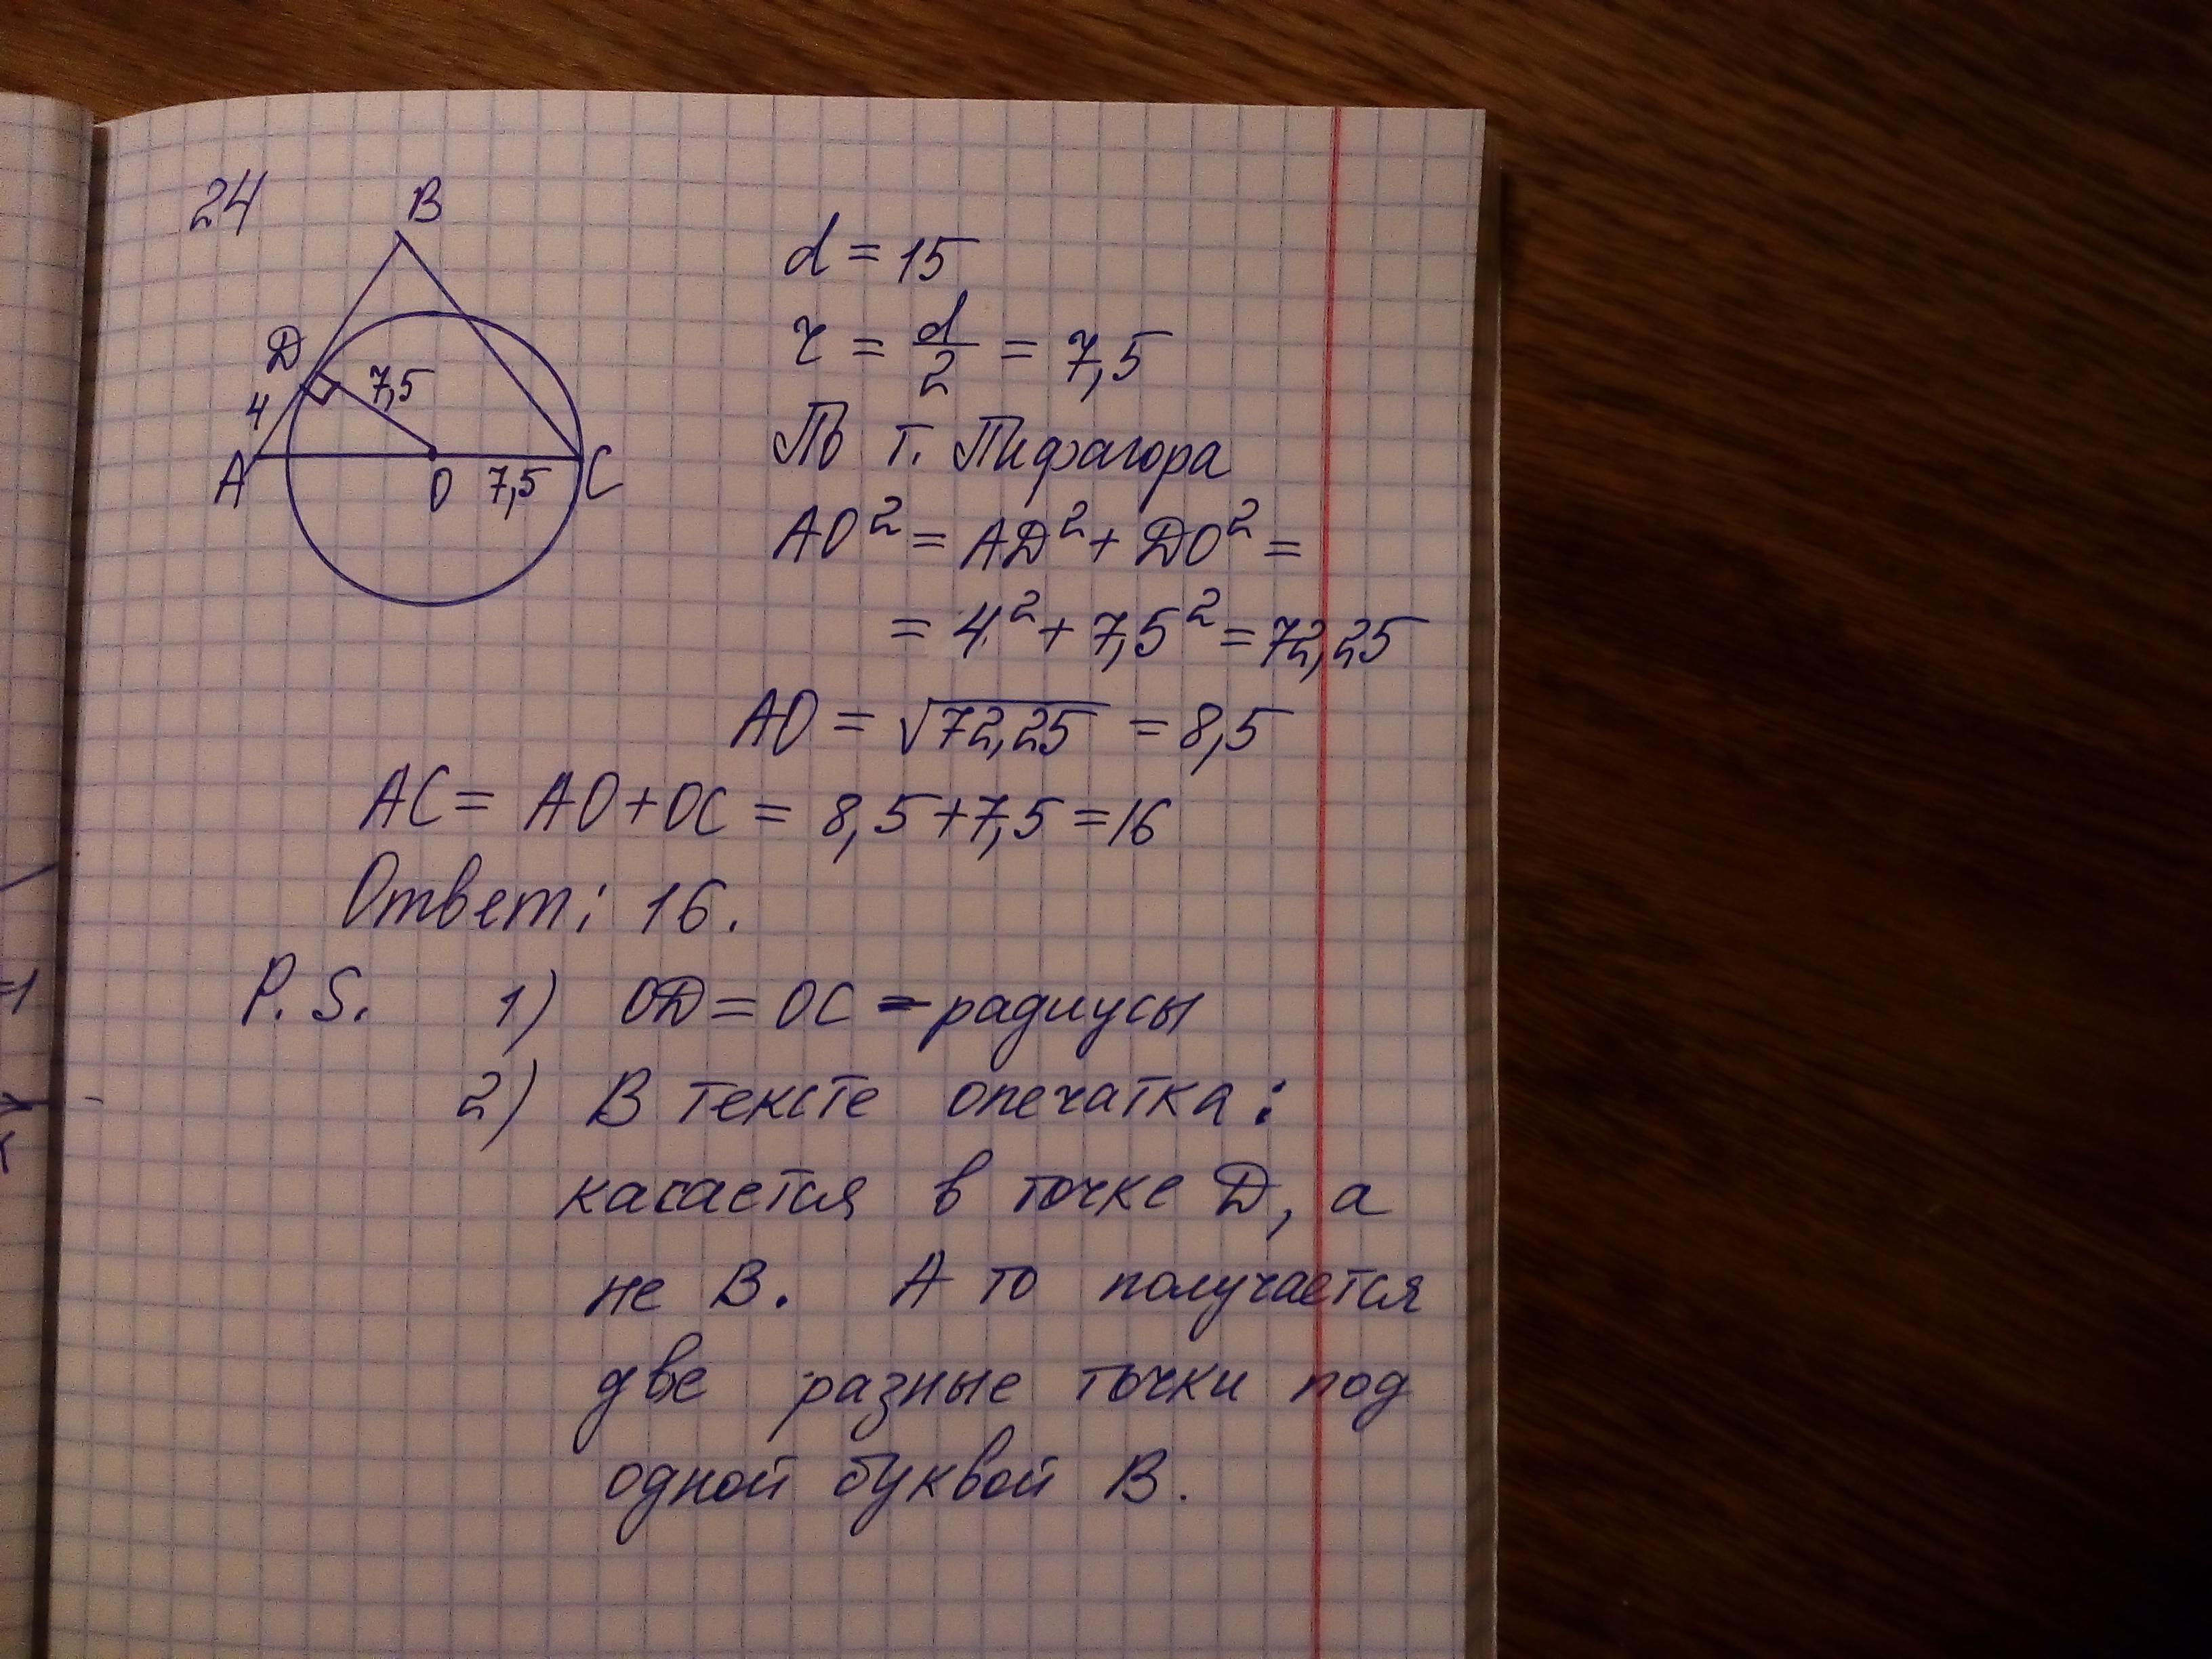 24
B
D
7,5
4
A
O
7,5
C
d = 15
r = d/2 = 7,5
По т. Пифагора
AO² = AD² + DO² =
= 4² + 7,5² = 72,25
AO = √72,25 = 8,5
AC = AO + OC = 8,5 + 7,5 = 16
Ответ: 16.
P.S. 1) OD = OC – радиусы
2) В тексте опечатка:
касается в точке D, а
не B. А то получается
две разные точки под
одной буквой B.